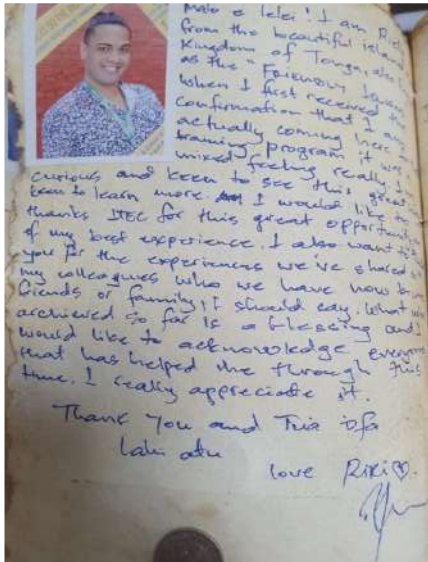 Malo e lelei! I am Riki
from the beautiful island
Kingdom of Tonga, also
as the "Friendly Islands
When I first received the
confirmation that I am
actually coming here to
training program it was
mixed feeling really. I
curious and keen to see this great
keen to learn more. I would like to
thanks ITEC for this great opportunity
of my best experience. I also want to
you for the experiences we've shared
my colleagues who we have now
friends or family, I should say. What we
archieved so far is a blessing and I
would like to acknowledge everyone
that has helped me through this
time. I really appreciate it.
Thank You and Tu'a 'ofa
lahi atu
love Riki